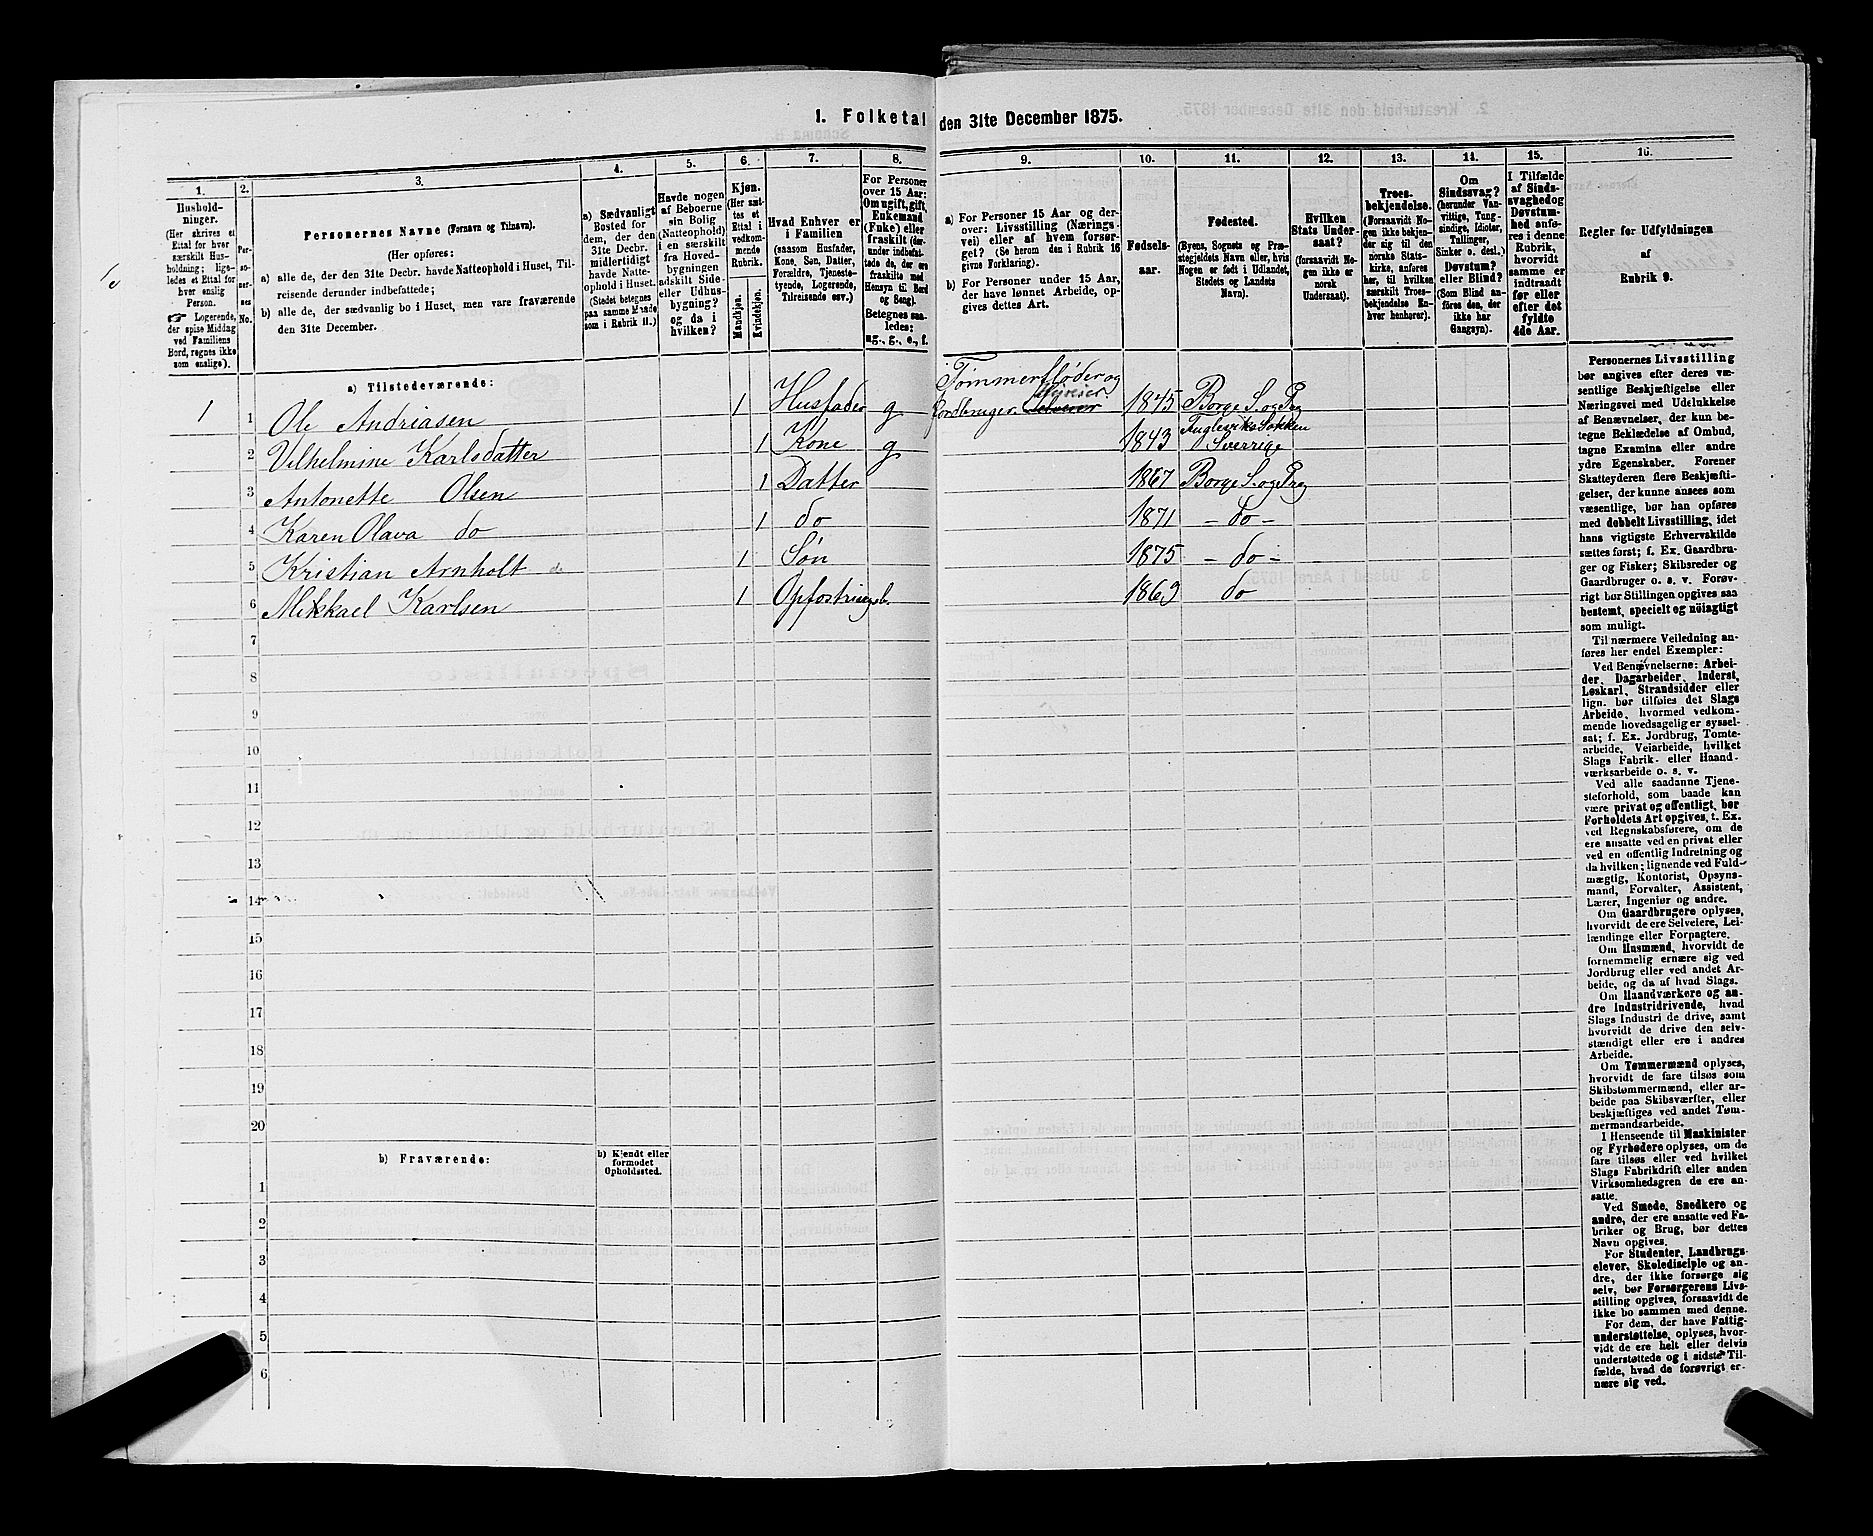 1. Folketal den 31te December 1875.
1.
2.
3.
4.
5.
6.
7.
8.
9.
10.
11.
12.
13.
14.
15.
16.
Hushold-
ninger.
(Her skrives et
Ettal for hver
særskilt Hus-
holdning; lige-
ledes et Ettal for
hver enslig
Person.
☛ Logerende,
der spise Middag
ved Familiens
Bord, regnes ikke
som enslige).
Per-
so-
ner-
nes
No.
Personernes Navne (Fornavn og Tilnavn).
(Her opføres:
a) alle de, der den 31te Decbr. havde Natteophold i Huset, Til-
reisende derunder indbefattede;
b) alle de, der sædvanlig bo i Huset, men vare fraværende
den 31te December.
a) Sædvanligt
Bosted for
dem, der den
31te Decbr.
midlertidigt
havde Natte-
ophold i Huset.
(Stedet betegnes
paa samme Maade
som i Rubrik 11.)
Havde nogen
af Beboerne
sin Bolig
(Natteophold)
i en særskilt
fra Hoved-
bygningen
adskilt Side-
eller Udhus-
bygning?
og da i
hvilken?
Kjøn.
(Her sæt-
tes et
Ettal i
vedkom-
mende
Rubrik.
Mandkjøn.
Kvindekjøn.
Hvad Enhver er
i Familien
(saasom Husfader,
Kone, Søn, Datter,
Forældre, Tjeneste-
tyende, Logerende,
Tilreisende osv.)
For Personer
over 15 Aar:
Om ugift, gift,
Enkemand
(Enke) eller
fraskilt (der-
under indbefat-
tede de, der ere
fraskilte med
Hensyn til Bord
og Seng).
Betegnes saa-
ledes:
ug., g., e., f.
a) For Personer 15 Aar og der-
over: Livsstilling (Nærings-
vei) eller af hvem forsør-
get? (Se herom den i Rubrik 16
givne Forklaring).
b) For Personer under 15 Aar,
der have lønnet Arbeide, op-
gives dettes Art.
Fødsels-
aar.
Fødested.
(Byens, Sognets og Præ-
stegjeldets Navn eller, hvis
Nogen er født i Udlandet,
Stedets og Landets
Navn).
Hvilken
Stats Under-
saat?
(forsaavidt No-
gen ikke er
norsk
Undersaat).
Troes-
bekjendelse.
(Forsaavidt No-
gen ikke bekjen-
der sig til den
norske Stats-
kirke, anføres
her, til hvilken
særskilt Troes-
bekjendelse En-
hver henhører).
Om
Sindssvag?
(herunder Van-
vittige, Tung-
sindige, Idioter,
Tullinger,
Sinker o. desl.).
Døvstum?
eller Blind?
(Som Blind an-
føres den, der
ikke har
Gangsyn).
I Tilfælde
af Sinds-
svaghed og
Døvstum-
hed anfø-
res i denne
Rubrik,
hvorvidt
samme er
indtraadt
før eller
efter det
fyldte
4de Aar.
Regler for Udfyldningen
af
Rubrik 9.
a) Tilstedeværende:
Tømmerfløder og
1 1 Ole Andriasen 1 Husfader g Jordbruger 1845 Borge S. og Prg
2 Vilhelmine Karlsdatter 1 Kone g 1843 Sverrige
3 Antonette Olsen 1 Datter 1867 Borge S. og Prg
4 Karen Olava do 1 do 1871 - do -
5 Kristian Arnholt do 1 Søn 1875 - do -
6 Mikkael Karlsen 1 Opfostringsb. 1869 do
7
8
9
10
11
12
13
14
15
16
17
18
19
20
b) Fraværende:
b) Kjendt eller
formodet
Opholdssted.
1
2
3
4
5
6
Personernes Livsstilling
bør angives efter deres væ-
sentlige Beskjæftigelse eller
Næringsvei med Udelukkelse
af Benævnelser, der kun be-
tegne Beklædelse af Ombud,
tagne Examina eller andre
ydre Egenskaber. Forener
Skatteyderen flere Beskjæfti-
gelser, der kunne ansees som
væsentlige, bør han opføres
med dobbelt Livsstilling, idet
hans vigtigste Erhvervskilde
sættes først; f. Ex. Gaardbru-
ger og Fisker; Skibsreder og
Gaardbruger o. s. v. Forøv-
rigt bør Stillingen opgives saa
bestemt, specielt og nöiagtigt
som muligt.
Til nærmere Veiledning an-
føres her endel Exempler:
Ved Benævnelserne: Arbei-
der, Dagarbeider, Inderst,
Løskarl, Strandsidder eller
lign. bør tilføies det Slags
Arbeide, hvormed vedkom-
mende hovedsagelig er syssel-
sat; f. Ex. Jordbrug, Tomte-
arbeide, Veiarbeide, hvilket
Slags Fabrik- eller Haand-
værksarbeide o. s. v.
Ved alle saadanne Tjene-
steforhold, som baade kan
være privat og offentligt, bør
Forholdets Art opgives, t. Ex.
ved Regnskabsførere, om de
ere ansatte ved en privat eller
ved en offentlig Indretning og
da hvilken; lignende ved Fuld-
mægtig, Kontorist, Opsyns-
mand, Forvalter, Assistent,
Lærer, Ingeniør og andre.
Om Gaardbrugere oplyses,
hvorvidt de ere Selveiere, Lei-
lændinge eller Forpagtere.
Om Husmænd, hvorvidt de
fornemmelig ernære sig ved
Jordbrug eller ved andet Ar-
beide, og da af hvad Slags.
Om Haandværkere og an-
dre Industridrivende, hvad
Slags Industri de drive, samt
hvorvidt de drive den selv-
stændigt eller ere i andres
Arbeide.
Om Tømmermænd oplyses,
hvorvidt de fare tilsøs som
Skibstømmermænd, eller ar-
beide paa Skibsværfter, eller
beskjæftiges ved andet Tøm-
mermandsarbeide.
I Henseende til Maskinister
og Fyrbødere oplyses, om de
fare tilsøs eller ved hvilket
Slags Fabrikdrift eller anden
Virksomhedsgren de ere an-
satte.
Ved Smede, Snedkere og
andre, der ere ansatte ved Fa-
briker og Brug, bør dettes
Navn opgives.
For Studenter, Landbrugs-
elever, Skoledisciple og an-
dre, der ikke forsørge sig
selv, bør Forsørgerens Livs-
stilling opgives, forsaavidt de
ikke bo sammen med denne.
For dem, der have Fattig-
understøttelse, oplyses, hvor-
vidt de ere helt eller delvis
understøttede og i sidste Til-
fælde, hvad de forøvrigt er-
nære sig ved.